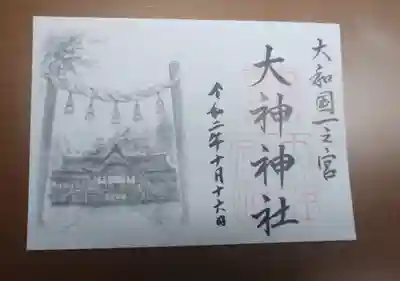 大和國一之宮
大神神社
令和二年十月十六日